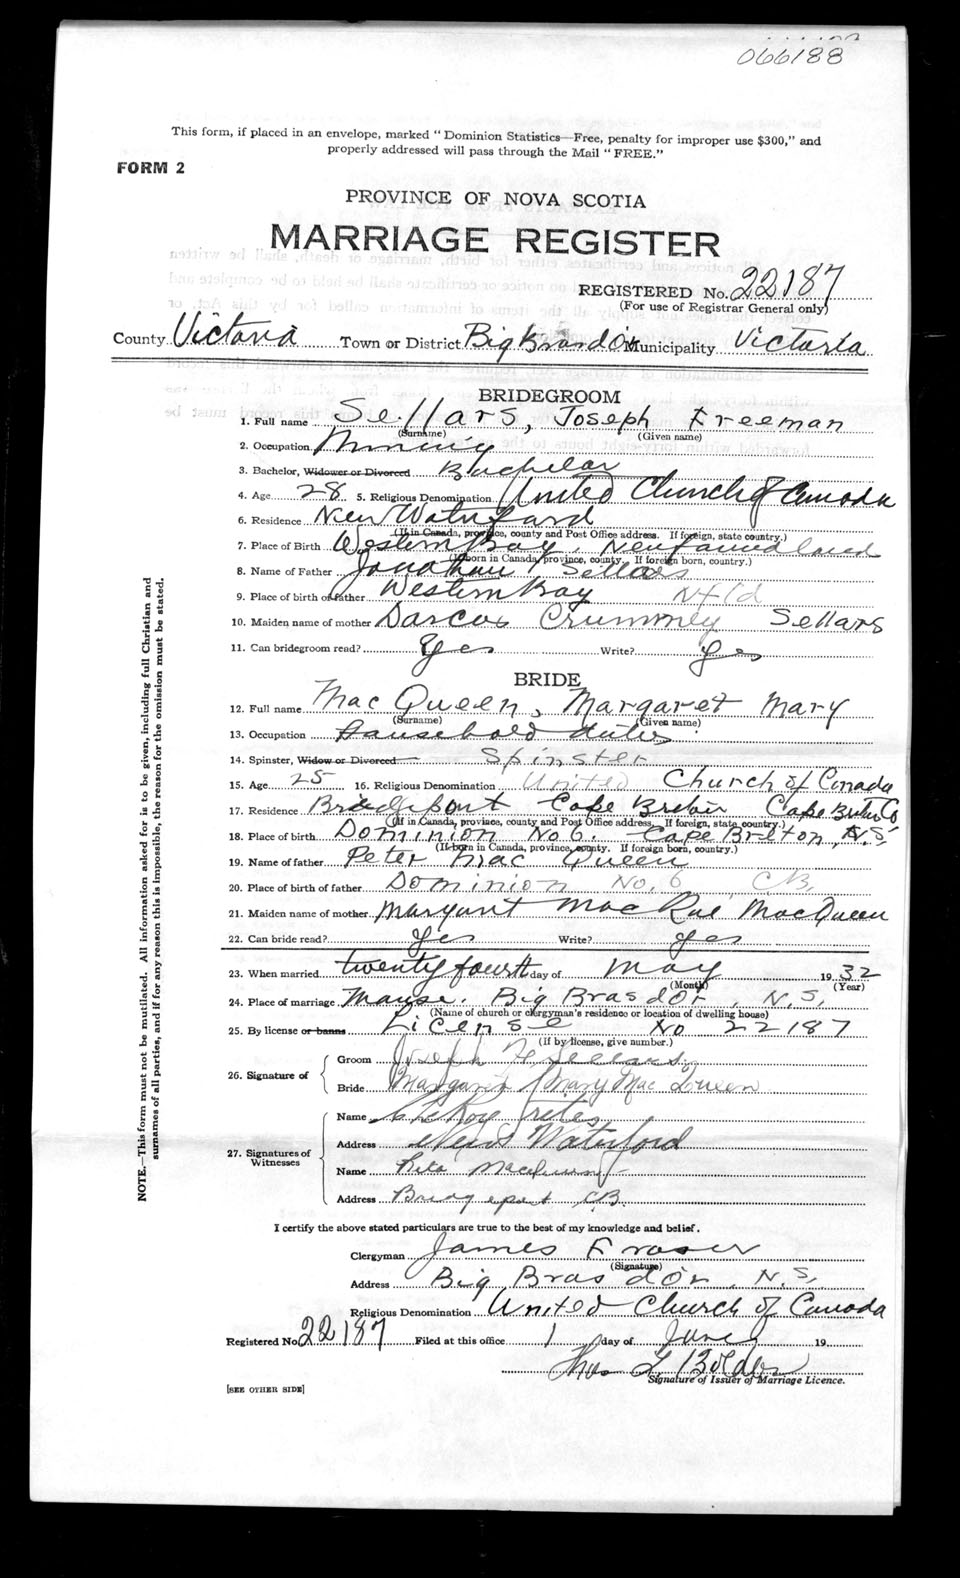 066188
This form, if placed in an envelope, marked "Dominion Statistics—Free, penalty for improper use $300," and
properly addressed will pass through the Mail "FREE."
FORM 2
PROVINCE OF NOVA SCOTIA
MARRIAGE REGISTER
REGISTERED No. 22187
(For use of Registrar General only)
County Victoria Town or District Big Bras d'Or Municipality Victoria
BRIDEGROOM
1. Full name Sellars, Joseph Freeman
(Surname) (Given name)
2. Occupation Mining
3. Bachelor, Widower or Divorced Bachelor
4. Age 28 5. Religious Denomination United Church of Canada
6. Residence New Waterford
(If in Canada, province, county and Post Office address. If foreign, state country.)
7. Place of Birth Western Bay, Newfoundland
(If born in Canada, province, county. If foreign born, country.)
8. Name of Father Jonathan Sellars
9. Place of birth of father Western Bay Nfld
10. Maiden name of mother Darcus Crummey Sellars
11. Can bridegroom read? Yes Write? Yes
BRIDE
12. Full name MacQueen, Margaret Mary
(Surname) (Given name)
13. Occupation Household duties
14. Spinster, Widow or Divorced Spinster
15. Age 25 16. Religious Denomination United Church of Canada
17. Residence Bridgeport Cape Breton Cape Breton Co
(If in Canada, province, county and Post Office address. If foreign, state country.)
18. Place of birth Dominion No 6. Cape Breton, N.S.
(If born in Canada, province, county. If foreign born, country.)
19. Name of father Peter MacQueen
20. Place of birth of father Dominion No. 6 C.B.
21. Maiden name of mother Margaret MacRae MacQueen
22. Can bride read? Yes Write? Yes
23. When married twenty fourth day of May 1932
(Month) (Year)
24. Place of marriage Manse. Big Bras d'Or, N.S.
(Name of church or clergyman's residence or location of dwelling house)
25. By license or banns License No 22187
(If by license, give number.)
26. Signature of
Groom Joseph F Sellars
Bride Margaret Mary MacQueen
27. Signatures of Witnesses
Name LeRoy
Address New Waterford
Name
Address Bridgeport C.B.
I certify the above stated particulars are true to the best of my knowledge and belief.
Clergyman James Fraser
(Signature)
Address Big Bras d'Or, N.S.
Religious Denomination United Church of Canada
Registered No. 22187 Filed at this office 1 day of June 19
Thos
Signature of Issuer of Marriage Licence.
[SEE OTHER SIDE]
NOTE.—This form must not be mutilated. All information asked for is to be given, including full Christian and
surnames of all parties, and if for any reason this is impossible, the reason for the omission must be stated.